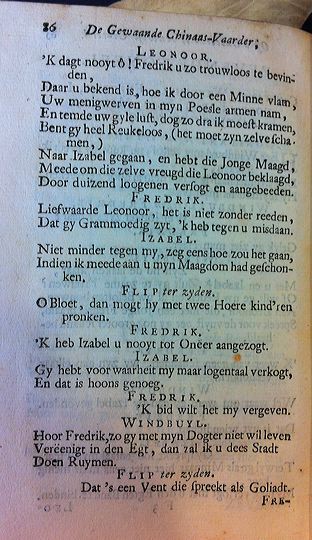 86 De Gewaande Chinaas-Vaarder,
LEONOOR.
'K dagt nooyt ô! Fredrik u zo trouwloos te bevin-
den,
Daar u bekend is, hoe ik door een Minne vlam,
Uw menigwerven in myn Poesle armen nam,
En temde uw gyle lust, dog zo dra ik moest kramen,
Bent gy heel Reukeloos, (het moet zyn zelve scha-
men,)
Naar Izabel gegaan, en hebt die Jonge Maagd,
Meede om die zelve vreugd die Leonoor beklaagd,
Door duizend loogenen versogt en aangebeeden.
FREDRIK.
Liefwaarde Leonoor, het is niet zonder reeden,
Dat gy Grammoedig zyt, 'k heb tegen u misdaan.
IZABEL.
Niet minder tegen my, zeg eens hoe zou het gaan,
Indien ik meede aan u myn Maagdom had geschon-
ken.
FLIP ter zyden.
O Bloet, dan mogt hy met twee Hoere kind'ren
pronken.
FREDRIK.
'K heb Izabel u nooyt tot Oneer aangezogt.
IZABEL.
Gy hebt voor waarheit my maar logentaal verkogt,
En dat is hoons genoeg.
FREDRIK.
'K bid wilt het my vergeven.
WINDBUYL.
Hoor Fredrik, zo gy met myn Dogter niet wil leven
Vereenigt in den Egt, dan zal ik u dees Stadt
Doen Ruymen.
FLIP ter zyden.
Dat 's een Vent die spreekt als Goliadt.
FRE-